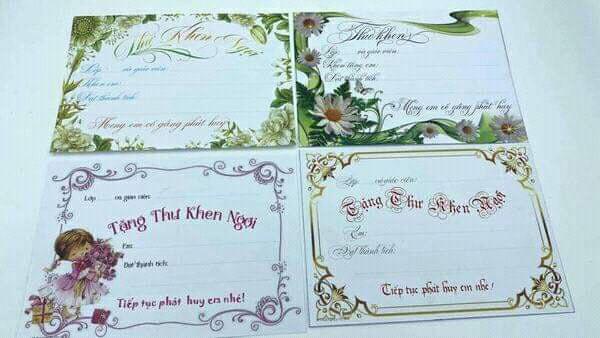 Thư Khen Ngợi
Lớp: và giáo viên:
Khen em:
Đạt thành tích:
Mong em cố gắng phát huy
Thư khen
Lớp: và giáo viên:
Khen tặng em:
Đạt thành tích:
Mong em cố gắng phát huy
Lớp và giáo viên:
Tặng Thư Khen Ngợi
Em:
Đạt thành tích:
Tiếp tục phát huy em nhé!
Lớp: và giáo viên:
Tặng Thư Khen Ngợi
Em:
Đạt thành tích:
Tiếp tục phát huy em nhé!